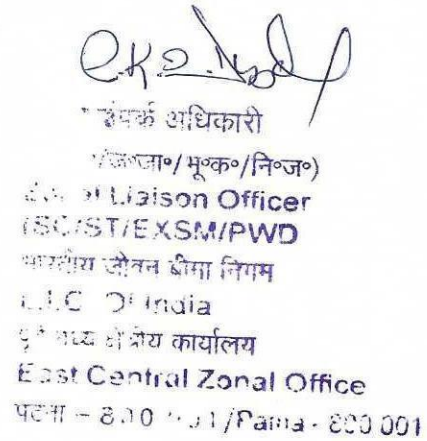 संपर्क अधिकारी
/ज०जा०/भू०क०/नि०ज०)
Liaison Officer
(SC/ST/EXSM/PWD
भारतीय जीवन बीमा निगम
L.I.C. Of India
पूर्व मध्य क्षेत्रीय कार्यालय
East Central Zonal Office
पटना - 800 001/Patna - 800 001